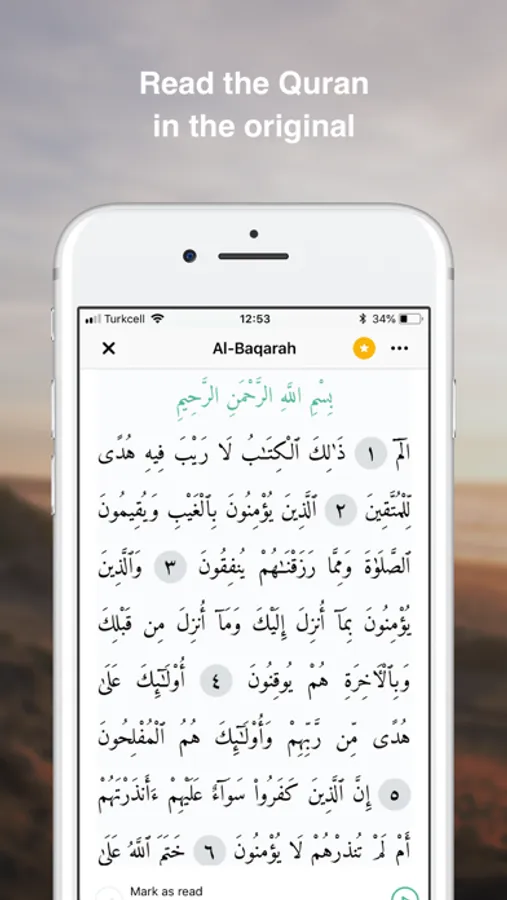 Read the Quran
in the original
Turkcell 12:53 34%
Al-Baqarah
بِسْمِ اللَّهِ الرَّحْمَنِ الرَّحِيمِ
الٓمٓ ١ ذَٰلِكَ ٱلْكِتَٰبُ لَا رَيْبَ فِيهِ هُدًى
لِّلْمُتَّقِينَ ٢ ٱلَّذِينَ يُؤْمِنُونَ بِٱلْغَيْبِ وَيُقِيمُونَ
ٱلصَّلَوٰةَ وَمِمَّا رَزَقْنَٰهُمْ يُنفِقُونَ ٣ وَٱلَّذِينَ
يُؤْمِنُونَ بِمَآ أُنزِلَ إِلَيْكَ وَمَآ أُنزِلَ مِن قَبْلِكَ
وَبِٱلْءَاخِرَةِ هُمْ يُوقِنُونَ ٤ أُو۟لَٰٓئِكَ عَلَىٰ
هُدًى مِّن رَّبِّهِمْ وَأُو۟لَٰٓئِكَ هُمُ ٱلْمُفْلِحُونَ
٥ إِنَّ ٱلَّذِينَ كَفَرُوا۟ سَوَآءٌ عَلَيْهِمْ ءَأَنذَرْتَهُمْ
أَمْ لَمْ تُنذِرْهُمْ لَا يُؤْمِنُونَ ٦ خَتَمَ ٱللَّهُ عَلَىٰ
Mark as read